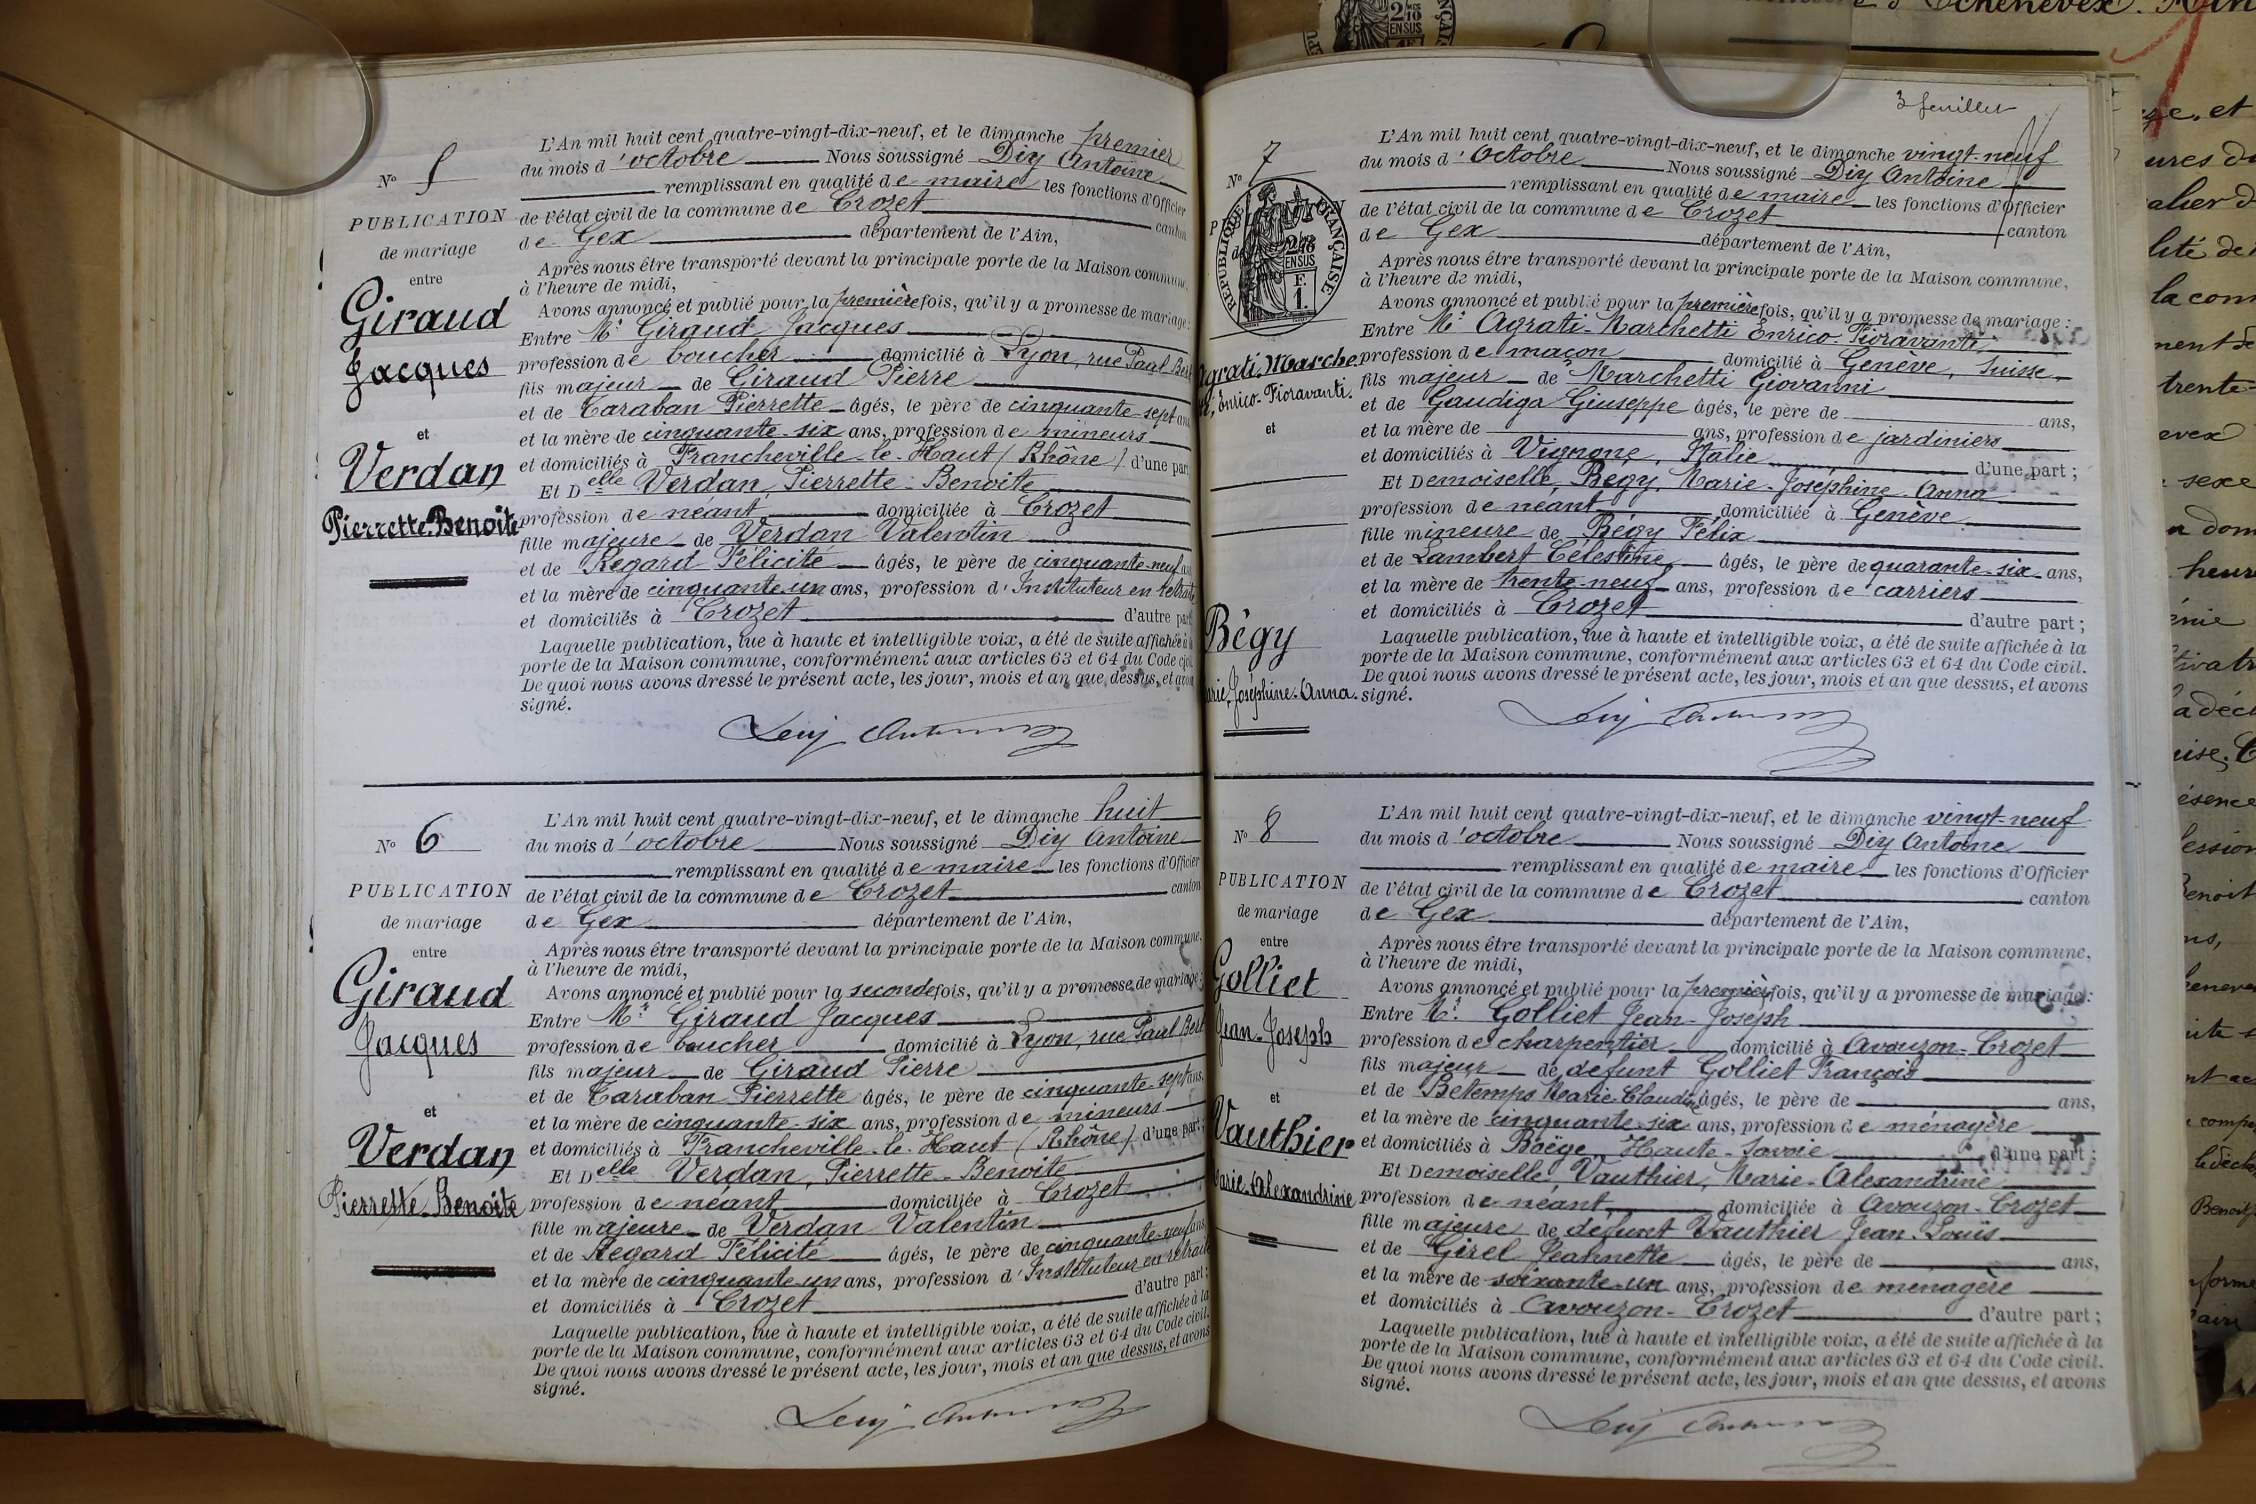 N° 5
PUBLICATION
de mariage
entre
Giraud
Jacques
et
Verdan
Pierrette-Benoite
L'An mil huit cent quatre-vingt-dix-neuf, et le dimanche premier
du mois d'octobre Nous soussigné Diy Antoine
remplissant en qualité de maire les fonctions d'Officier
de l'état civil de la commune de Crozet canton
de Gex département de l'Ain,
Après nous être transporté devant la principale porte de la Maison commune,
à l'heure de midi,
Avons annoncé et publié pour la première fois, qu'il y a promesse de mariage:
Entre Mr. Giraud Jacques
profession de boucher domicilié à Lyon, rue Paul Bert
fils majeur de Giraud Pierre
et de Taraban Pierrette âgés, le père de cinquante-sept ans
et la mère de cinquante-six ans, profession de mineurs
et domiciliés à Francheville-le-Haut (Rhône) d'une part
Et Delle Verdan, Pierrette-Benoite
profession de néant domiciliée à Crozet
fille majeure de Verdan Valentin
et de Regard Félicité âgés, le père de cinquante-neuf ans
et la mère de cinquante-un ans, profession d'Instituteur en retraite
et domiciliés à Crozet d'autre part
Laquelle publication, lue à haute et intelligible voix, a été de suite affichée à la
porte de la Maison commune, conformément aux articles 63 et 64 du Code civil.
De quoi nous avons dressé le présent acte, les jour, mois et an que dessus, et avons
signé.
Diy Antoine
N° 6
PUBLICATION
de mariage
entre
Giraud
Jacques
et
Verdan
Pierrette-Benoite
L'An mil huit cent quatre-vingt-dix-neuf, et le dimanche huit
du mois d'octobre Nous soussigné Diy Antoine
remplissant en qualité de maire les fonctions d'Officier
de l'état civil de la commune de Crozet canton
de Gex département de l'Ain,
Après nous être transporté devant la principale porte de la Maison commune,
à l'heure de midi,
Avons annoncé et publié pour la seconde fois, qu'il y a promesse de mariage:
Entre Mr. Giraud Jacques
profession de boucher domicilié à Lyon, rue Paul Bert
fils majeur de Giraud Pierre
et de Taraban Pierrette âgés, le père de cinquante-sept ans.
et la mère de cinquante-six ans, profession de mineurs
et domiciliés à Francheville-le-Haut (Rhône) d'une part;
Et Delle Verdan, Pierrette-Benoite
profession de néant domiciliée à Crozet
fille majeure de Verdan Valentin
et de Regard Félicité âgés, le père de cinquante-neuf ans,
et la mère de cinquante-un ans, profession d'Instituteur en retraite
et domiciliés à Crozet d'autre part;
Laquelle publication, lue à haute et intelligible voix, a été de suite affichée à la
porte de la Maison commune, conformément aux articles 63 et 64 du Code civil.
De quoi nous avons dressé le présent acte, les jour, mois et an que dessus, et avons
signé.
Diy Antoine
3 feuillet
N° 7
RÉPUBLIQUE FRANÇAISE
2/10
EN SUS
F.
1.
Agrati-Marchetti,
Enrico-Fioravanti.
et
Bégy
Marie-Joséphine-Anna.
L'An mil huit cent quatre-vingt-dix-neuf, et le dimanche vingt-neuf
du mois d'Octobre Nous soussigné Diy Antoine
remplissant en qualité de maire les fonctions d'Officier
de l'état civil de la commune de Crozet canton
de Gex département de l'Ain,
Après nous être transporté devant la principale porte de la Maison commune,
à l'heure de midi,
Avons annoncé et publié pour la première fois, qu'il y a promesse de mariage:
Entre Mr. Agrati-Marchetti Enrico-Fioravanti,
profession de maçon domicilié à Genève, Suisse
fils majeur de Marchetti Giovanni
et de Gaudiga Giuseppe âgés, le père de ans,
et la mère de ans, profession de jardiniers
et domiciliés à Vignone, Italie d'une part;
Et Demoiselle Bégy, Marie-Joséphine-Anna
profession de néant domiciliée à Genève
fille mineure de Bégy Félix
et de Lambert Célestine âgés, le père de quarante-six ans,
et la mère de trente-neuf ans, profession de carriers
et domiciliés à Crozet d'autre part;
Laquelle publication, lue à haute et intelligible voix, a été de suite affichée à la
porte de la Maison commune, conformément aux articles 63 et 64 du Code civil.
De quoi nous avons dressé le présent acte, les jour, mois et an que dessus, et avons
signé.
Diy Antoine
N° 8
PUBLICATION
de mariage
entre
Golliet
Jean-Joseph
et
Vauthier
Marie-Alexandrine
L'An mil huit cent quatre-vingt-dix-neuf, et le dimanche vingt-neuf
du mois d'octobre Nous soussigné Diy Antoine
remplissant en qualité de maire les fonctions d'Officier
de l'état civil de la commune de Crozet canton
de Gex département de l'Ain,
Après nous être transporté devant la principale porte de la Maison commune,
à l'heure de midi,
Avons annoncé et publié pour la première fois, qu'il y a promesse de mariage:
Entre Mr. Golliet Jean-Joseph
profession de charpentier domicilié à Avouzon-Crozet
fils majeur de défunt Golliet François
et de Betemps Marie-Claudine âgés, le père de ans,
et la mère de cinquante-six ans, profession de ménagère
et domiciliés à Boëge, Haute-Savoie d'une part;
Et Demoiselle Vauthier, Marie-Alexandrine
profession de néant, domiciliée à Avouzon-Crozet
fille majeure de défunt Vauthier Jean-Louis
et de Girel Jeannette âgés, le père de ans,
et la mère de soixante-un ans, profession de ménagère
et domiciliés à Avouzon-Crozet d'autre part;
Laquelle publication, lue à haute et intelligible voix, a été de suite affichée à la
porte de la Maison commune, conformément aux articles 63 et 64 du Code civil.
De quoi nous avons dressé le présent acte, les jour, mois et an que dessus, et avons
signé.
Diy Antoine